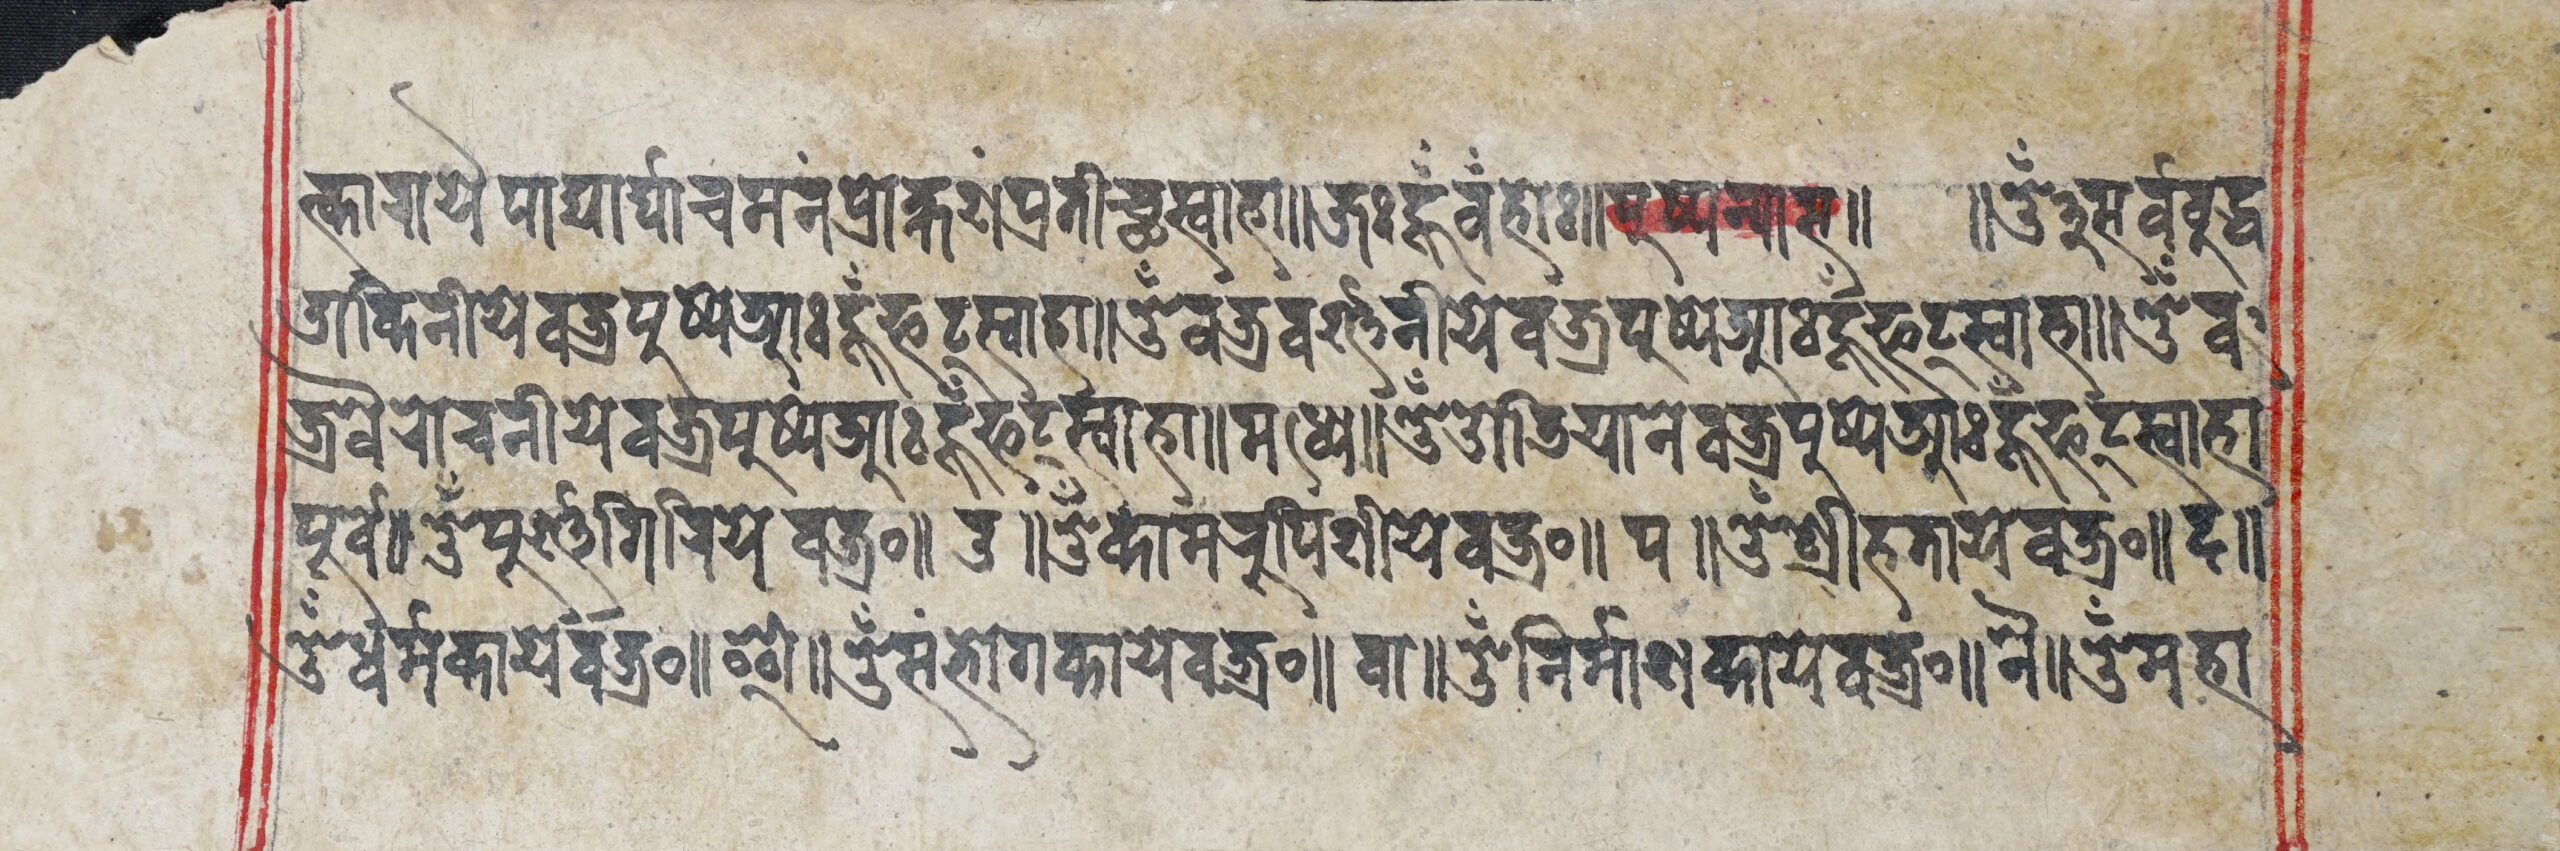 त्कारायै पाद्यार्घाचमनं प्रोक्षणं प्रतीच्छ स्वाहा॥ जः हूँ वँ होः॥ पुष्पन्यास॥ ॥ ॐ सर्वबुद्ध
डाकिनीये वज्रपुष्पे आः हूँ फट् स्वाहा॥ ॐ वज्रवर्ण्णनीये वज्रपुष्पे आः हूँ फट् स्वाहा॥ ॐ व
ज्रवैरोचनीये वज्रपुष्पे आः हूँ फट् स्वाहा॥ मध्य॥ ॐ उोडियाने वज्रपुष्पे आः हूँ फट् स्वाहा
पूर्व॥ ॐ पूर्ण्णगिरिये वज्र॰॥ उ॥ ॐ कामरुपिणीये वज्र॰॥ प॥ ॐ श्रीहताये वज्र॰॥ द॥
ॐ धर्मकाये वज्र॰॥ ॐ संभोगकाये वज्र॰॥ वा॥ ॐ निर्माणकाये वज्र॰॥ नै॥ ॐ महा